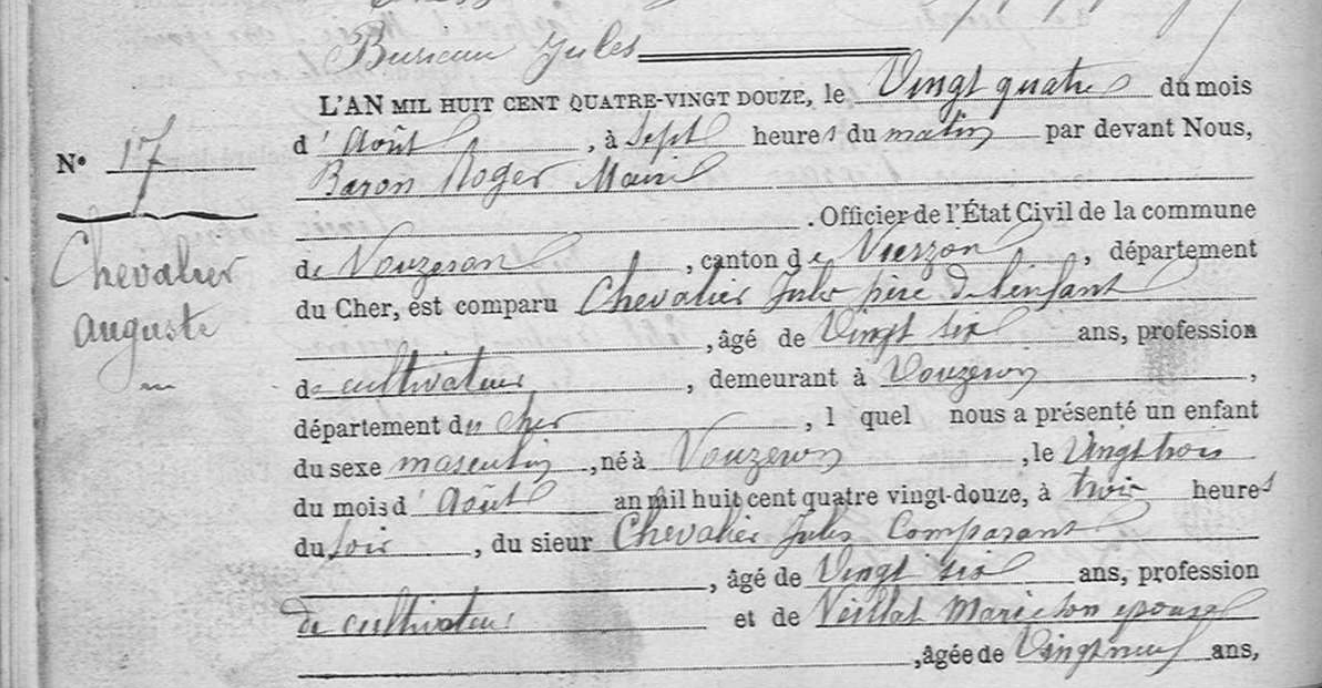 Bureau Jules
L'AN MIL HUIT CENT QUATRE-VINGT DOUZE, le Vingt quatre du mois
d'Août, à Sept heures du matin par devant Nous,
N° 17
Baron Roger Maire
. Officier de l'État Civil de la commune
Chevalier
Auguste
de Vouzeron, canton de Vierzon, département
du Cher, est comparu Chevalier Jules père de l'enfant
, âgé de Vingt six ans, profession
de cultivateur, demeurant à Vouzeron,
département du Cher, l quel nous a présenté un enfant
du sexe masculin, né à Vouzeron, le Vingt trois
du mois d'Août an mil huit cent quatre vingt-douze, à trois heures
du soir, du sieur Chevalier Jules Comparant
, âgé de Vingt six ans, profession
de cultivateur et de Veillat Marie son épouse
, âgée de Vingt neuf ans,